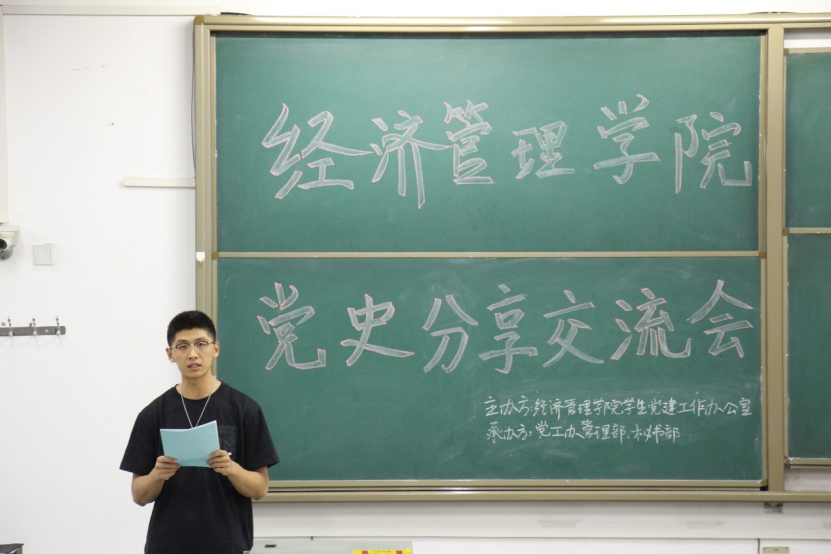 经济管理学院
党史分享交流会
主办方:经济管理学院学生党建工作办公室
承办方:党工办管理部、秘书部